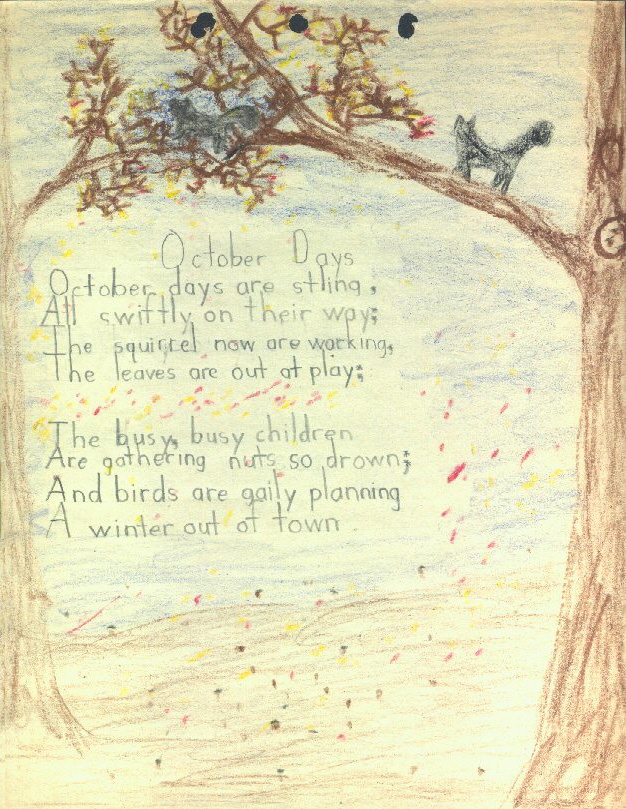 October Days
October days are stling,
All swiftly on their way;
The squirrel now are working,
The leaves are out at play;
The busy, busy children
Are gathering nuts so drown;
And birds are gaily planning
A winter out of town